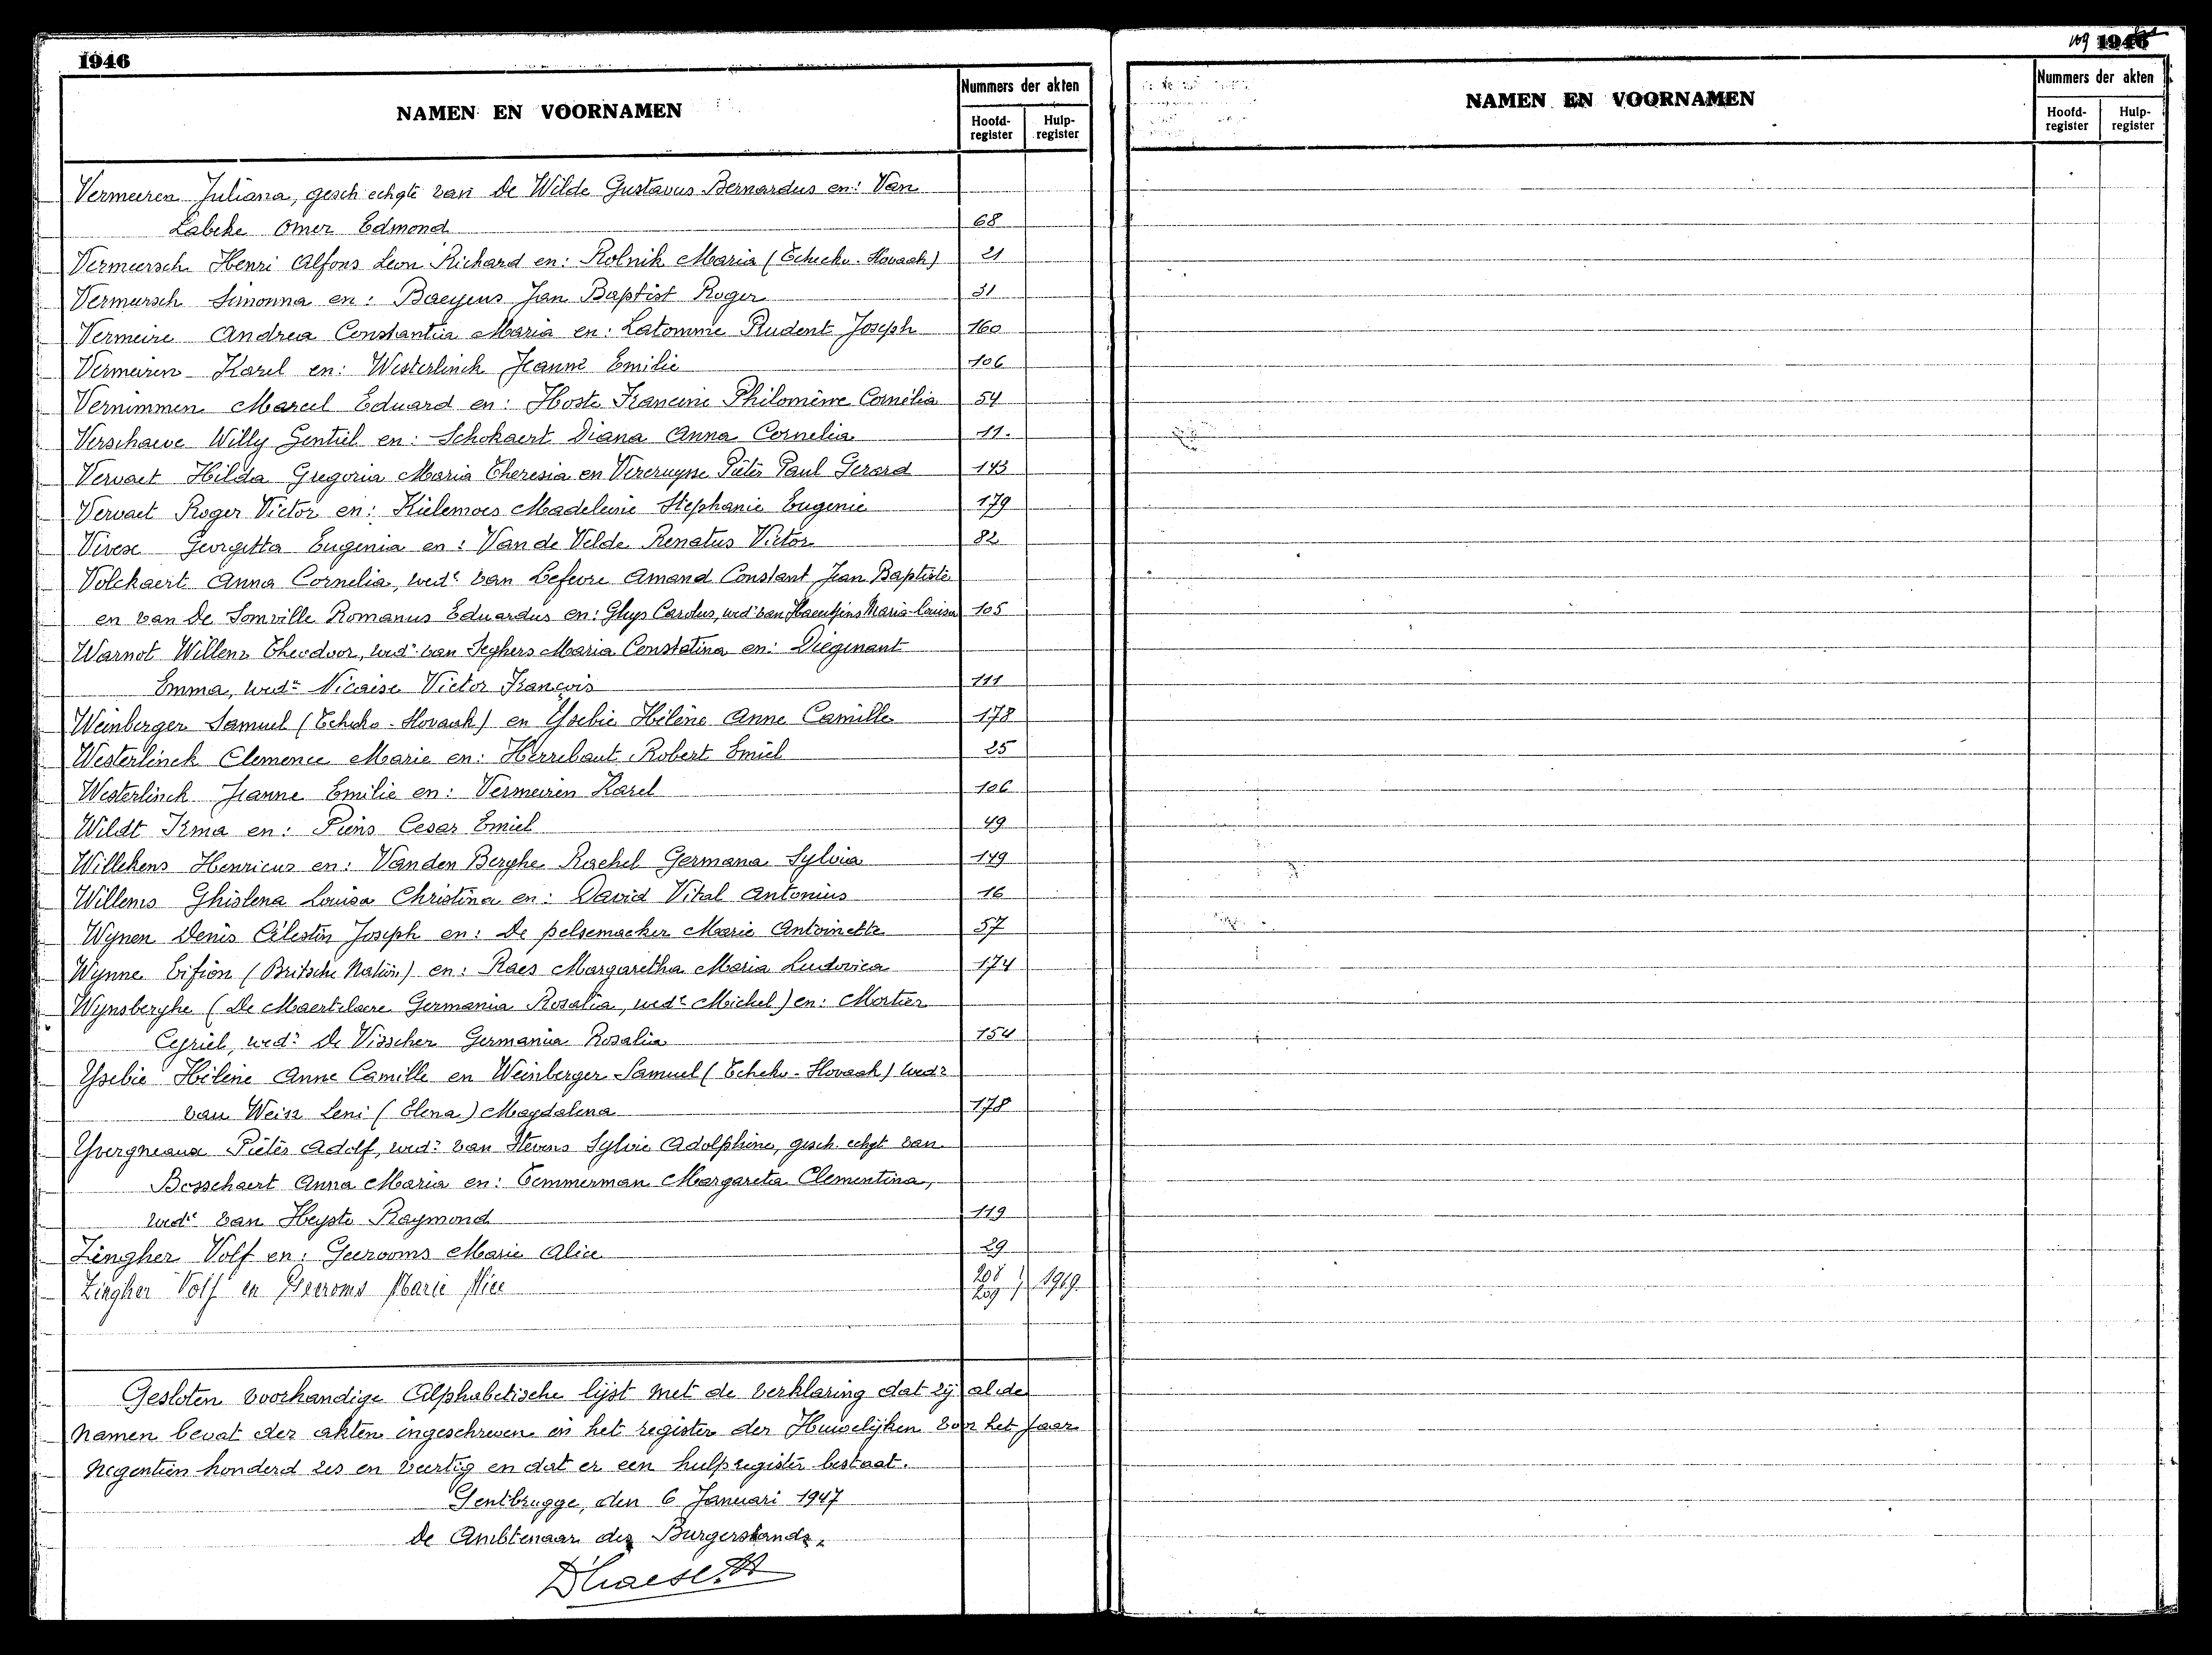 1946
NAMEN EN VOORNAMEN
Nummers der akten
Hoofd-register
Hulp-register
Vermeeren Juliana, gesch echgte van De Wilde Gustavus Bernardus en: Van
Labeke Omer Edmond 68
Vermeersch Henri Alfons Leon Richard en: Rolnik Maria (Tcheko-Slovaak) 21
Vermeersch Simonna en: Baeyens Jan Baptist Roger 31
Vermeire Andrea Constantia Maria en: Latomme Prudent Joseph 160
Vermeiren Karel en: Westerlinck Jeanne Emilie 106
Vernimmen Marcel Eduard en: Hoste Francine Philomène Cornélia 54
Verschaeve Willy Gentiel en: Schokaert Diana Anna Cornelia 11.
Vervaet Hilda Gregoria Maria Theresia en Vercruysse Pieter Paul Gerard 143
Vervaet Roger Victor en: Kielemoes Madeleine Stephanie Eugenie 179
Vivex Georgetta Eugenia en: Van de Velde Renatus Victor 82
Volckaert Anna Cornelia, wede van Lefevre Amand Constant Jean Baptiste
en van De Somville Romanus Eduardus en: Ghys Carolus, wedr van Haentjens Maria-Louisa 105
Warnot Willem Theodoor, wedr van Seghers Maria Constatina en: Diëgenant
Emma, wede Nicaise Victor François 111
Weinberger Samuel (Tcheko-Slovaak) en Ysebie Hélène Anne Camille 178
Westerlinck Clemence Marie en: Herrebaut Robert Emiel 25
Westerlinck Jeanne Emilie en: Vermeiren Karel 106
Wildt Irma en: Piens Cesar Emiel 49
Willekens Henricus en: Vanden Berghe Rachel Germana Sylvia 149
Willems Ghislena Louisa Christina en: David Vital Antonius 16
Wijnen Denis Célestin Joseph en: De pelsemaeker Marie Antoinette 57
Wynne Eifion (Britsche Natiën) en: Raes Margaretha Maria Ludovica 174
Wijnsberghe (De Maertelaere Germania Rosalia, wede Michel) en: Mortier
Cyriel, wedr De Visscher Germania Rosalia 154
Ysebie Hélène Anne Camille en Weinberger Samuel (Tcheko-Slovaak) wedr
van Weisz Leni (Elena) Magdalena 178
Yvergneaux Pieter Adolf, wedr van Stevens Sylvie Adolphine, gesch. echgt van
Bosschaert Anna Maria en: Temmerman Margareta Clementina,
wede van Heyste Raymond 119
Zingher Volf en: Geerooms Marie Alice 29
Zingher Volf en Geeroms Marie Alice 208 209 } 1919.
Gesloten voorhandige Alphabetische lijst met de verklaring dat zij al de
namen bevat der akten ingeschreven in het register der Huwelijken voor het jaar
negentien honderd zes en veertig en dat er een hulpregister bestaat.
Gentbrugge, den 6 Januari 1947
De Ambtenaar des Burgerstands,
D'haese
109 1946
NAMEN EN VOORNAMEN
Nummers der akten
Hoofd-register
Hulp-register